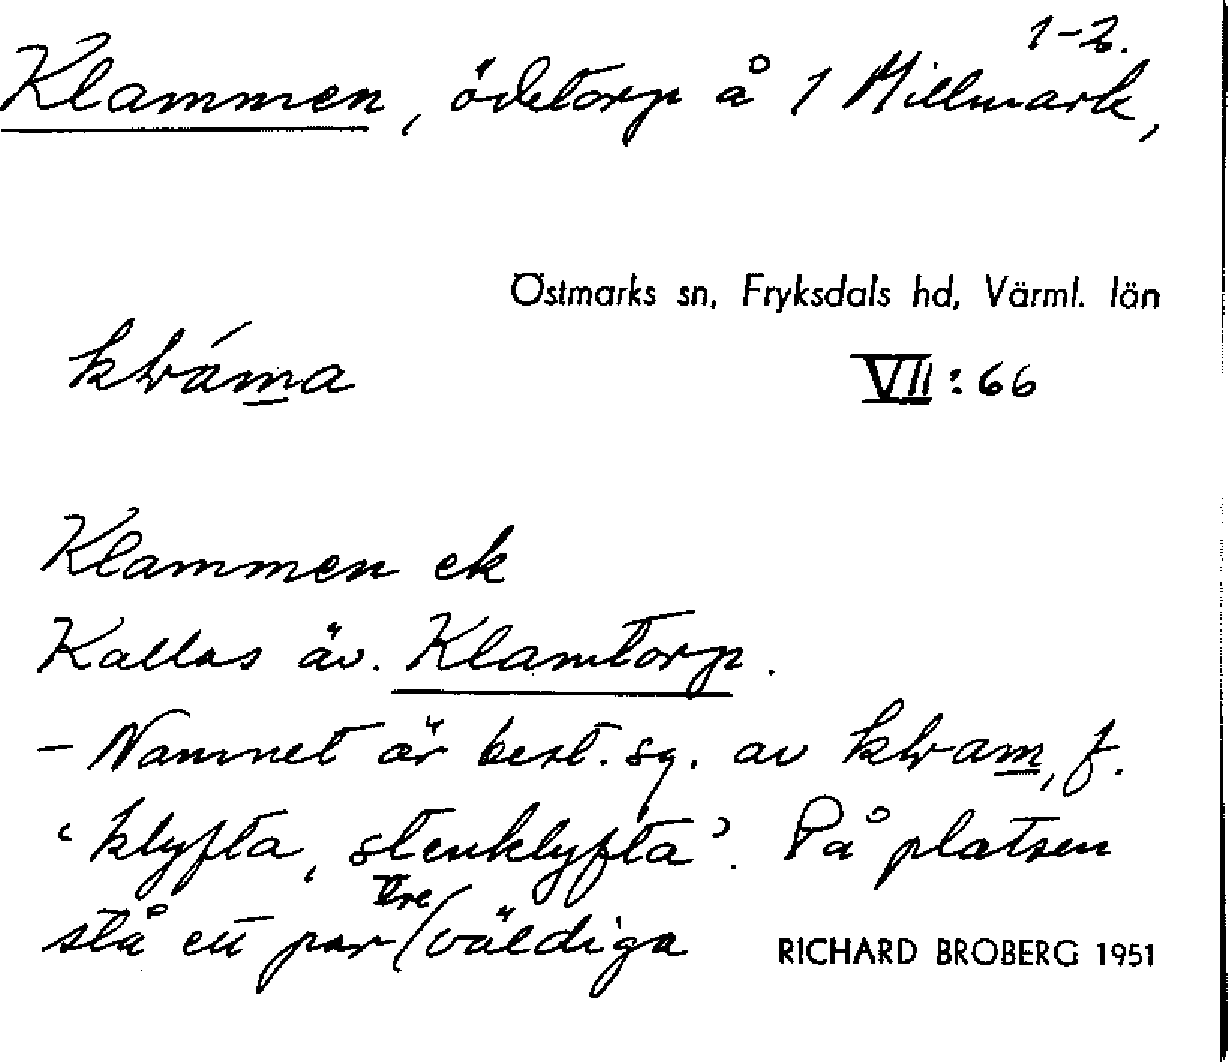 1-2.
Klammen, ödetorp å 1 Millmark,
Östmarks sn, Fryksdals hd, Värml. län
VII:66
Klammen ek
Kallas äv. Klamtorp.
- Namnet är best. sg. av f.
'klyfta, stenklyfta'. På platsen
stå ett par tre väldiga
RICHARD BROBERG 1951